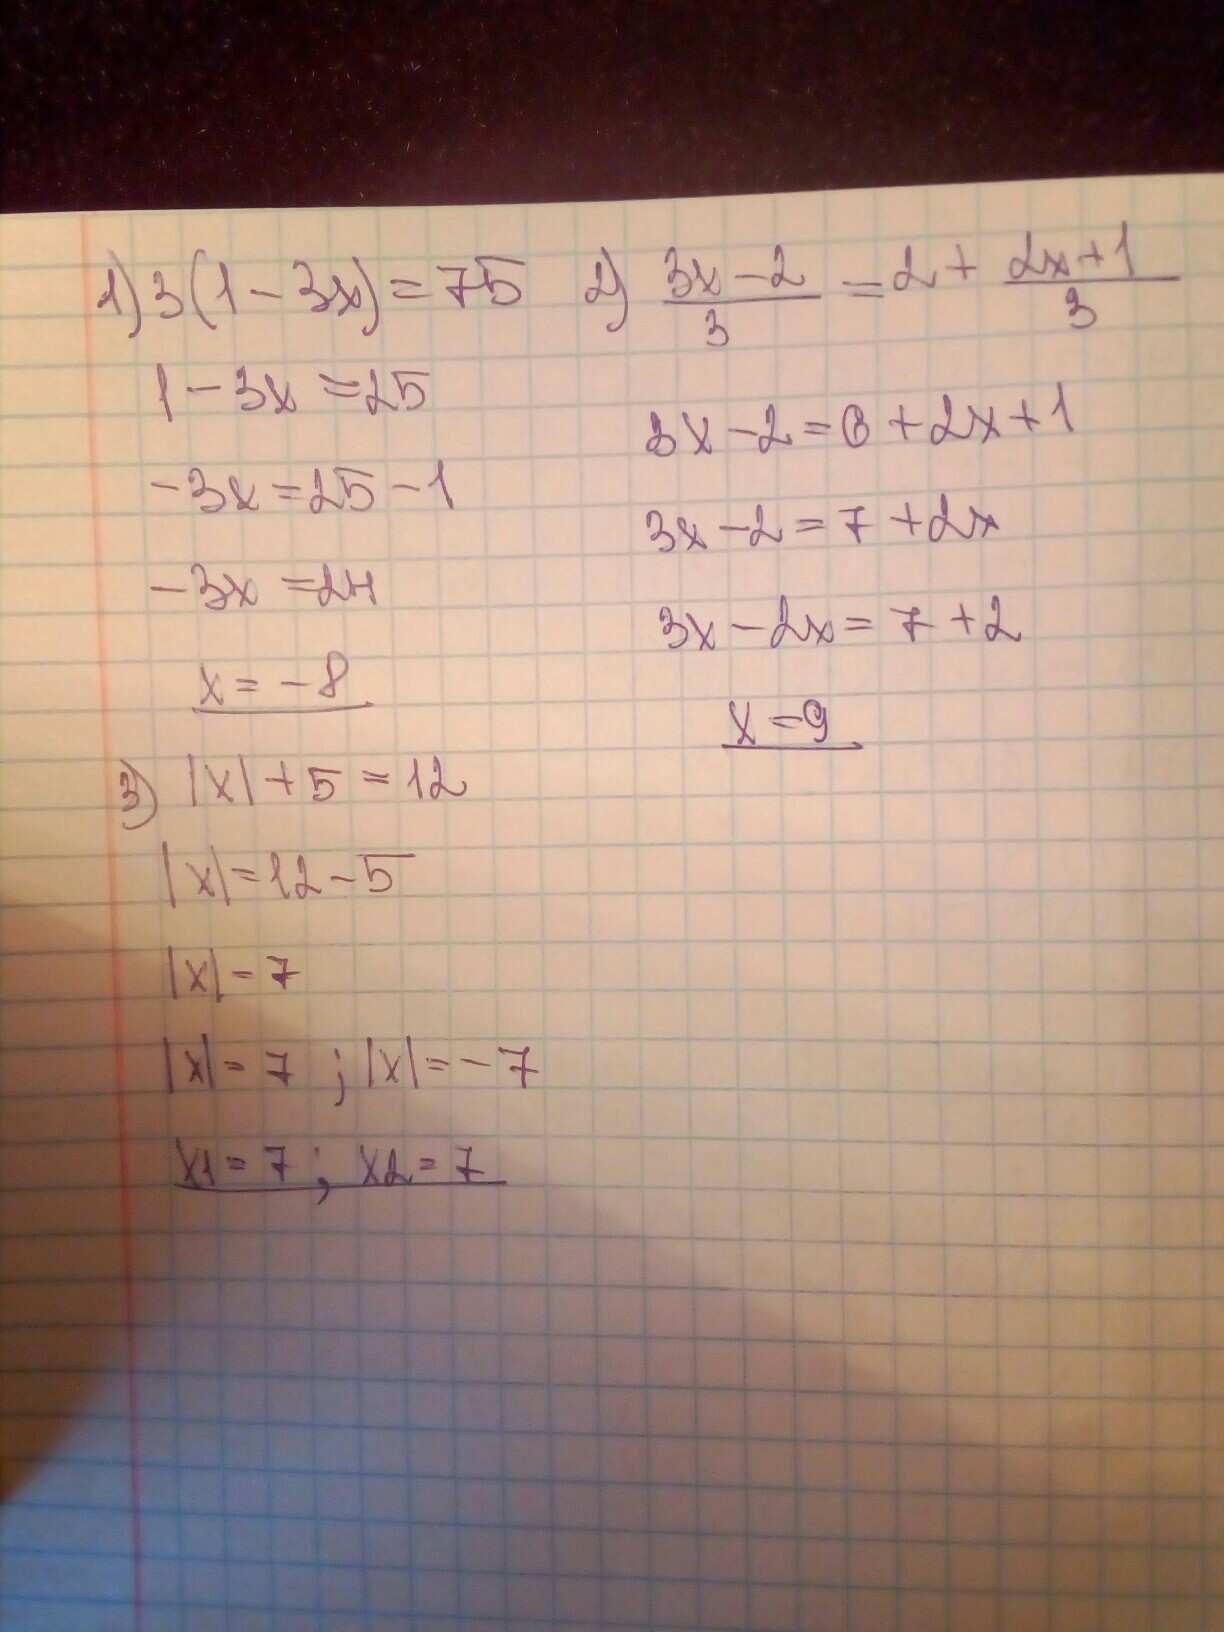 1) 3(1-3x)=75
1-3x=25
-3x=25-1
-3x=24
x=-8
2) \frac{3x-2}{3}=2+\frac{2x+1}{3}
3x-2=6+2x+1
3x-2=7+2x
3x-2x=7+2
x=9
3) |x|+5=12
|x|=12-5
|x|=7
|x|=7; |x|=-7
x1=7; x2=7